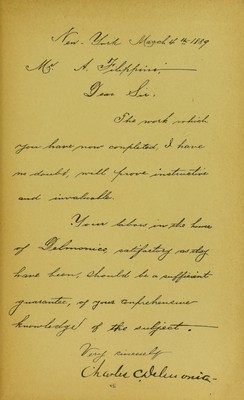 New-York March 4th 1889
Mr. A. Filippini.
Dear Sir.
The work which
you have now completed, I have
no doubt, will prove instructive
and invaluable.
Your labors in the house
of Delmonico, satisfactory as they
have been, should be a sufficient
guarantee, of your comprehensive
knowledge of the subject.
Very sincerely
Charles C Delmonico